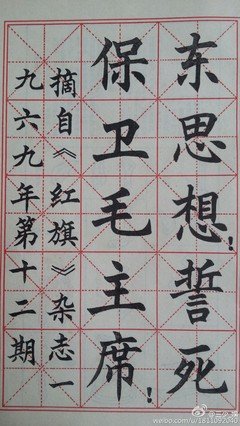 东思想！誓死
保卫毛主席！
摘自《红旗》杂志一
九六九年第十二期
weibo.com/u/1811092040